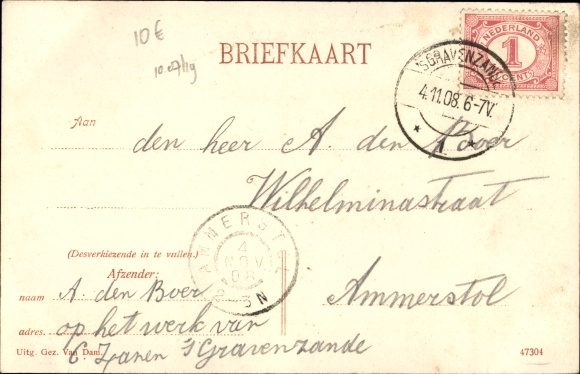 10€
10.07/19
BRIEFKAART
NEDERLAND
1
CENT
'SGRAVENZANDE
4.11.08.6-7V.
Aan
den heer A. den Boer
Wilhelminastraat
AMMERSTOL
4
NOV
08
3 N
(Desverkiezende in te vullen.)
Afzender:
naam A. den Boer
Ammerstol
adres. op het werk van
C. Zanen 's Gravenzande
Uitg. Gez. Van Dam.
47304